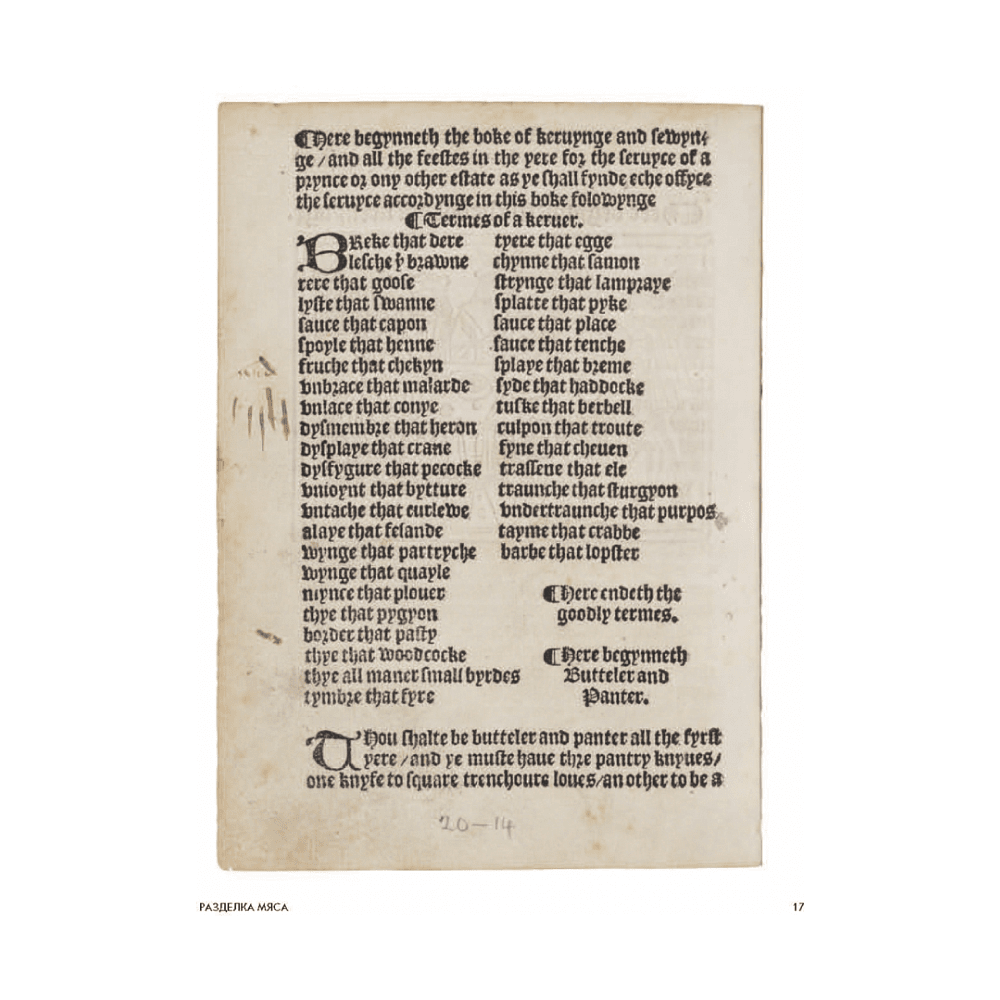 ¶Here begynneth the boke of keruynge and sewyn-
ge / and all the feestes in the yere for the seruyce of a
prynce or ony other estate as ye shall fynde eche offyce
the seruyce accordynge in this boke folowynge
¶Termes of a keruer.
BReke that dere
lesche þͭ brawne
rere that goose
lyfte that swanne
sauce that capon
spoyle that henne
fruche that chekyn
vnbrace that malarde
vnlace that conye
dysmembre that heron
dysplaye that crane
dysfygure that pecocke
vnioynt that bytture
vntache that curlewe
alaye that fesande
wynge that partryche
wynge that quayle
mynce that plouer
thye that pygyon
border that pasty
thye that woodcocke
thye all maner small byrdes
tymbre that fyre
tyere that egge
chynne that samon
strynge that lampraye
splatte that pyke
sauce that place
sauce that tenche
splaye that breme
syde that haddocke
tuske that berbell
culpon that troute
fyne that cheuen
trassene that ele
traunche that sturgyon
vndertraunche that purpos
tayme that crabbe
barbe that lopster
¶Here endeth the
goodly termes.
¶Here begynneth
Butteler and
Panter.
THou shalte be butteler and panter all the fyrst
yere / and ye muste haue thre pantry knyues /
one knyfe to square trenchoure loues / an other to be a
20-14
РАЗДЕЛКА МЯСА
17